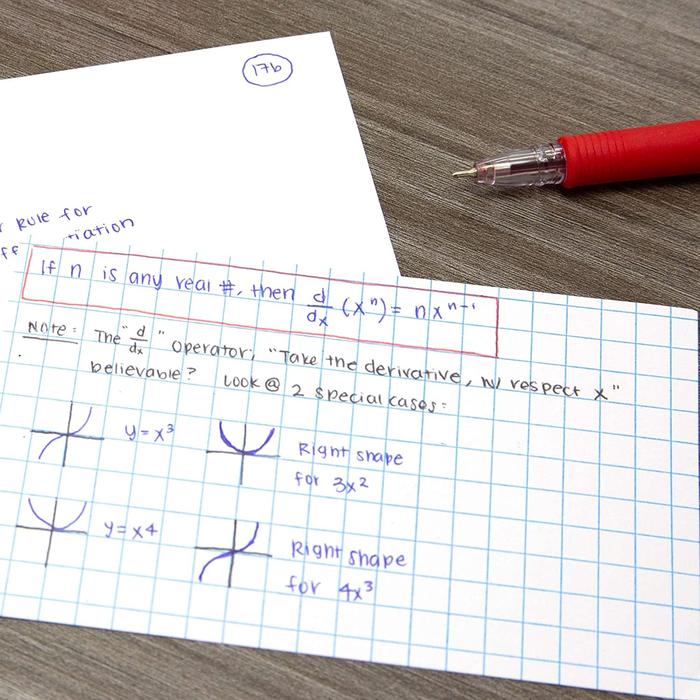 17b
Rule for
ff tiation
If n is any real #, then d/dx (xⁿ) = nxⁿ⁻¹
Note: The "d/dx" operator, "Take the derivative, w/ respect x"
believable? Look @ 2 special cases:
y = x³
Right shape
for 3x²
y = x4
Right shape
for 4x³